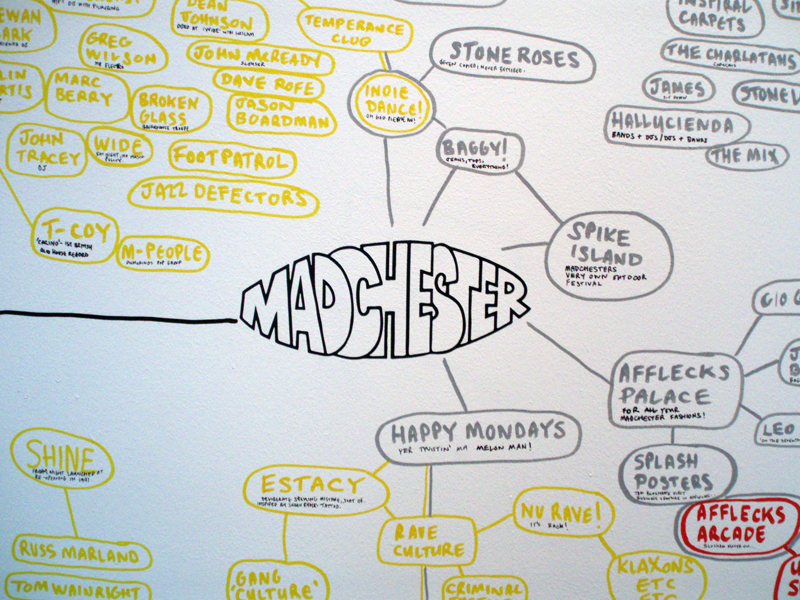 EWAN
ARK
GREG
WILSON
DEAN
JOHNSON
TEMPERANCE
CLUB
JOHN McREADY
DAVE ROFE
JASON
BOARDMAN
LIN
RTIS
MARC
BERRY
BROKEN
GLASS
JOHN
TRACEY
DJ
WIDE
FOOT PATROL
JAZZ DEFECTORS
T-COY
'CARINO' - 1ST BRITISH
HOUSE RECORD
M-PEOPLE
STONE ROSES
INDIE
DANCE!
BAGGY!
JEANS, TOPS,
EVERYTHING!
INSPIRAL
CARPETS
THE CHARLATANS
JAMES
STONE
HALLUCIENDA
BANDS + DJS / DJS + BANDS
THE MIX
SPIKE
ISLAND
MADCHESTERS
VERY OWN OUTDOOR
FESTIVAL
MADCHESTER
AFFLECKS
PALACE
FOR ALL YOUR
MADCHESTER FASHIONS!
GIO
LEO
SPLASH
POSTERS
AFFLECKS
ARCADE
HAPPY MONDAYS
YER TWISTIN' MA MELON MAN!
SHINE
RUSS MARLAND
TOM WAINWRIGHT
ESTACY
GANG
'CULTURE'
RAVE
CULTURE
NU RAVE!
IT'S BACK!
KLAXONS
ETC
ETC
CRIMINAL